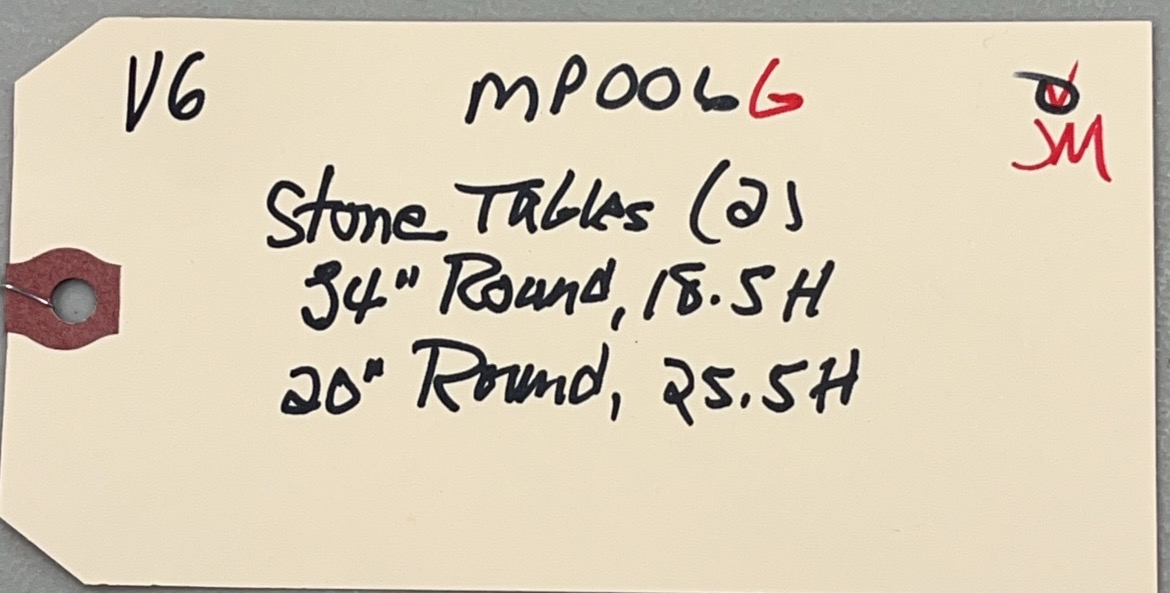 V6 MP0066 JM
Stone Tables (2)
34" Round, 18.5H
20" Round, 25.5H